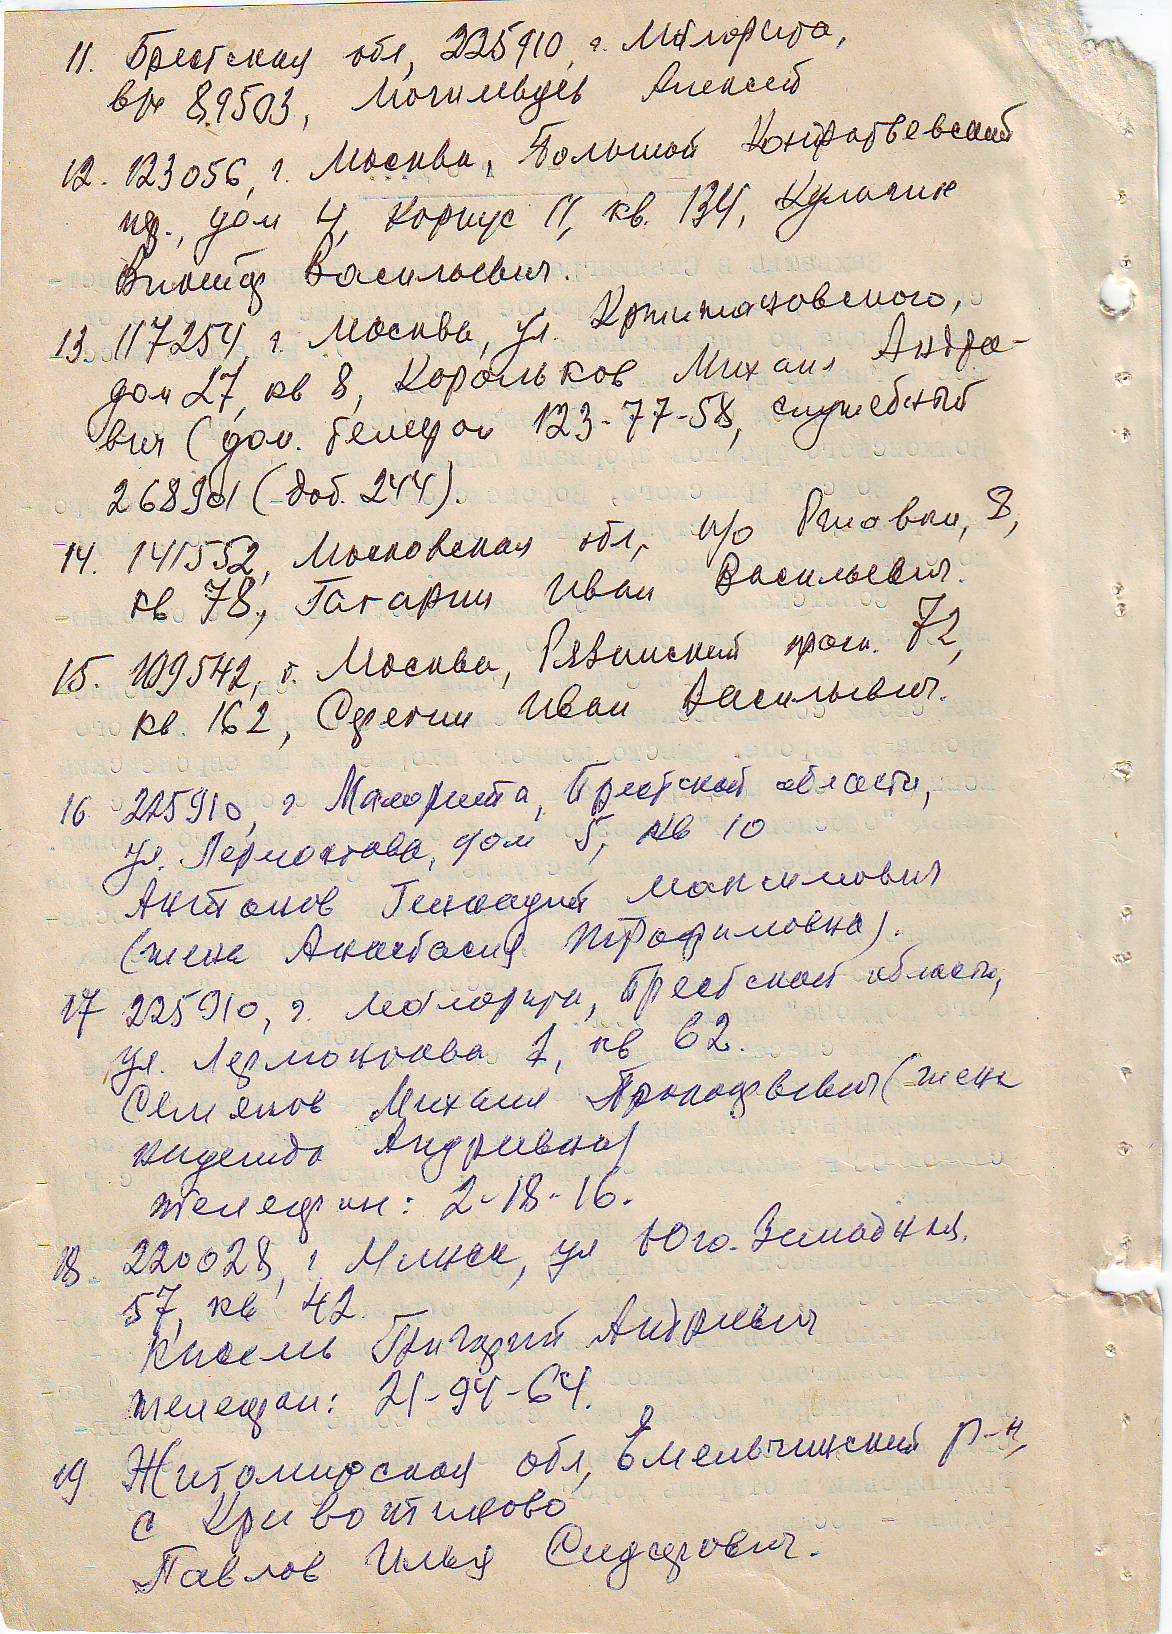 11. Брестская обл, 225910, г. Малорита,
в/ч 89503, Могилевцев Алексей
12. 123056, г. Москва, Большой Кондратьевский
пер., дом 4, корпус 11, кв. 134, Кулагин
Виктор Васильевич.
13. 117254, г. Москва, ул. Кржижановского,
дом 27, кв 8, Корольков Михаил Андре-
вич (дом. телефон 123-77-58, служебный
268901 (доб. 244).
14. 141552, Московская обл, п/о Ржавки, 8,
кв 78, Гагарин Иван Васильевич.
15. 109542, г. Москва, Рязанский просп. 72,
кв. 162, Серегин Иван Васильевич.
16. 225910, г Малорита, Брестской области,
ул. Лермонтова, дом 5, кв 10
Антонов Геннадий Максимович
(жена Анастасия Трофимовна).
17 225910, г. Малорита, Брестской области,
ул. Лермонтова 7, кв 62.
Семенов Михаил Прокофьевич (жена
Надежда Андреевна)
телефон: 2-18-16.
18. 220028, г. Минск, ул Юго-Западная,
57, кв 42.
Кисель Григорий Андреевич
телефон: 21-94-64.
19 Житомирская обл, Емельчинский р-н,
с Кривотиново
Павлов Илья Сидорович.